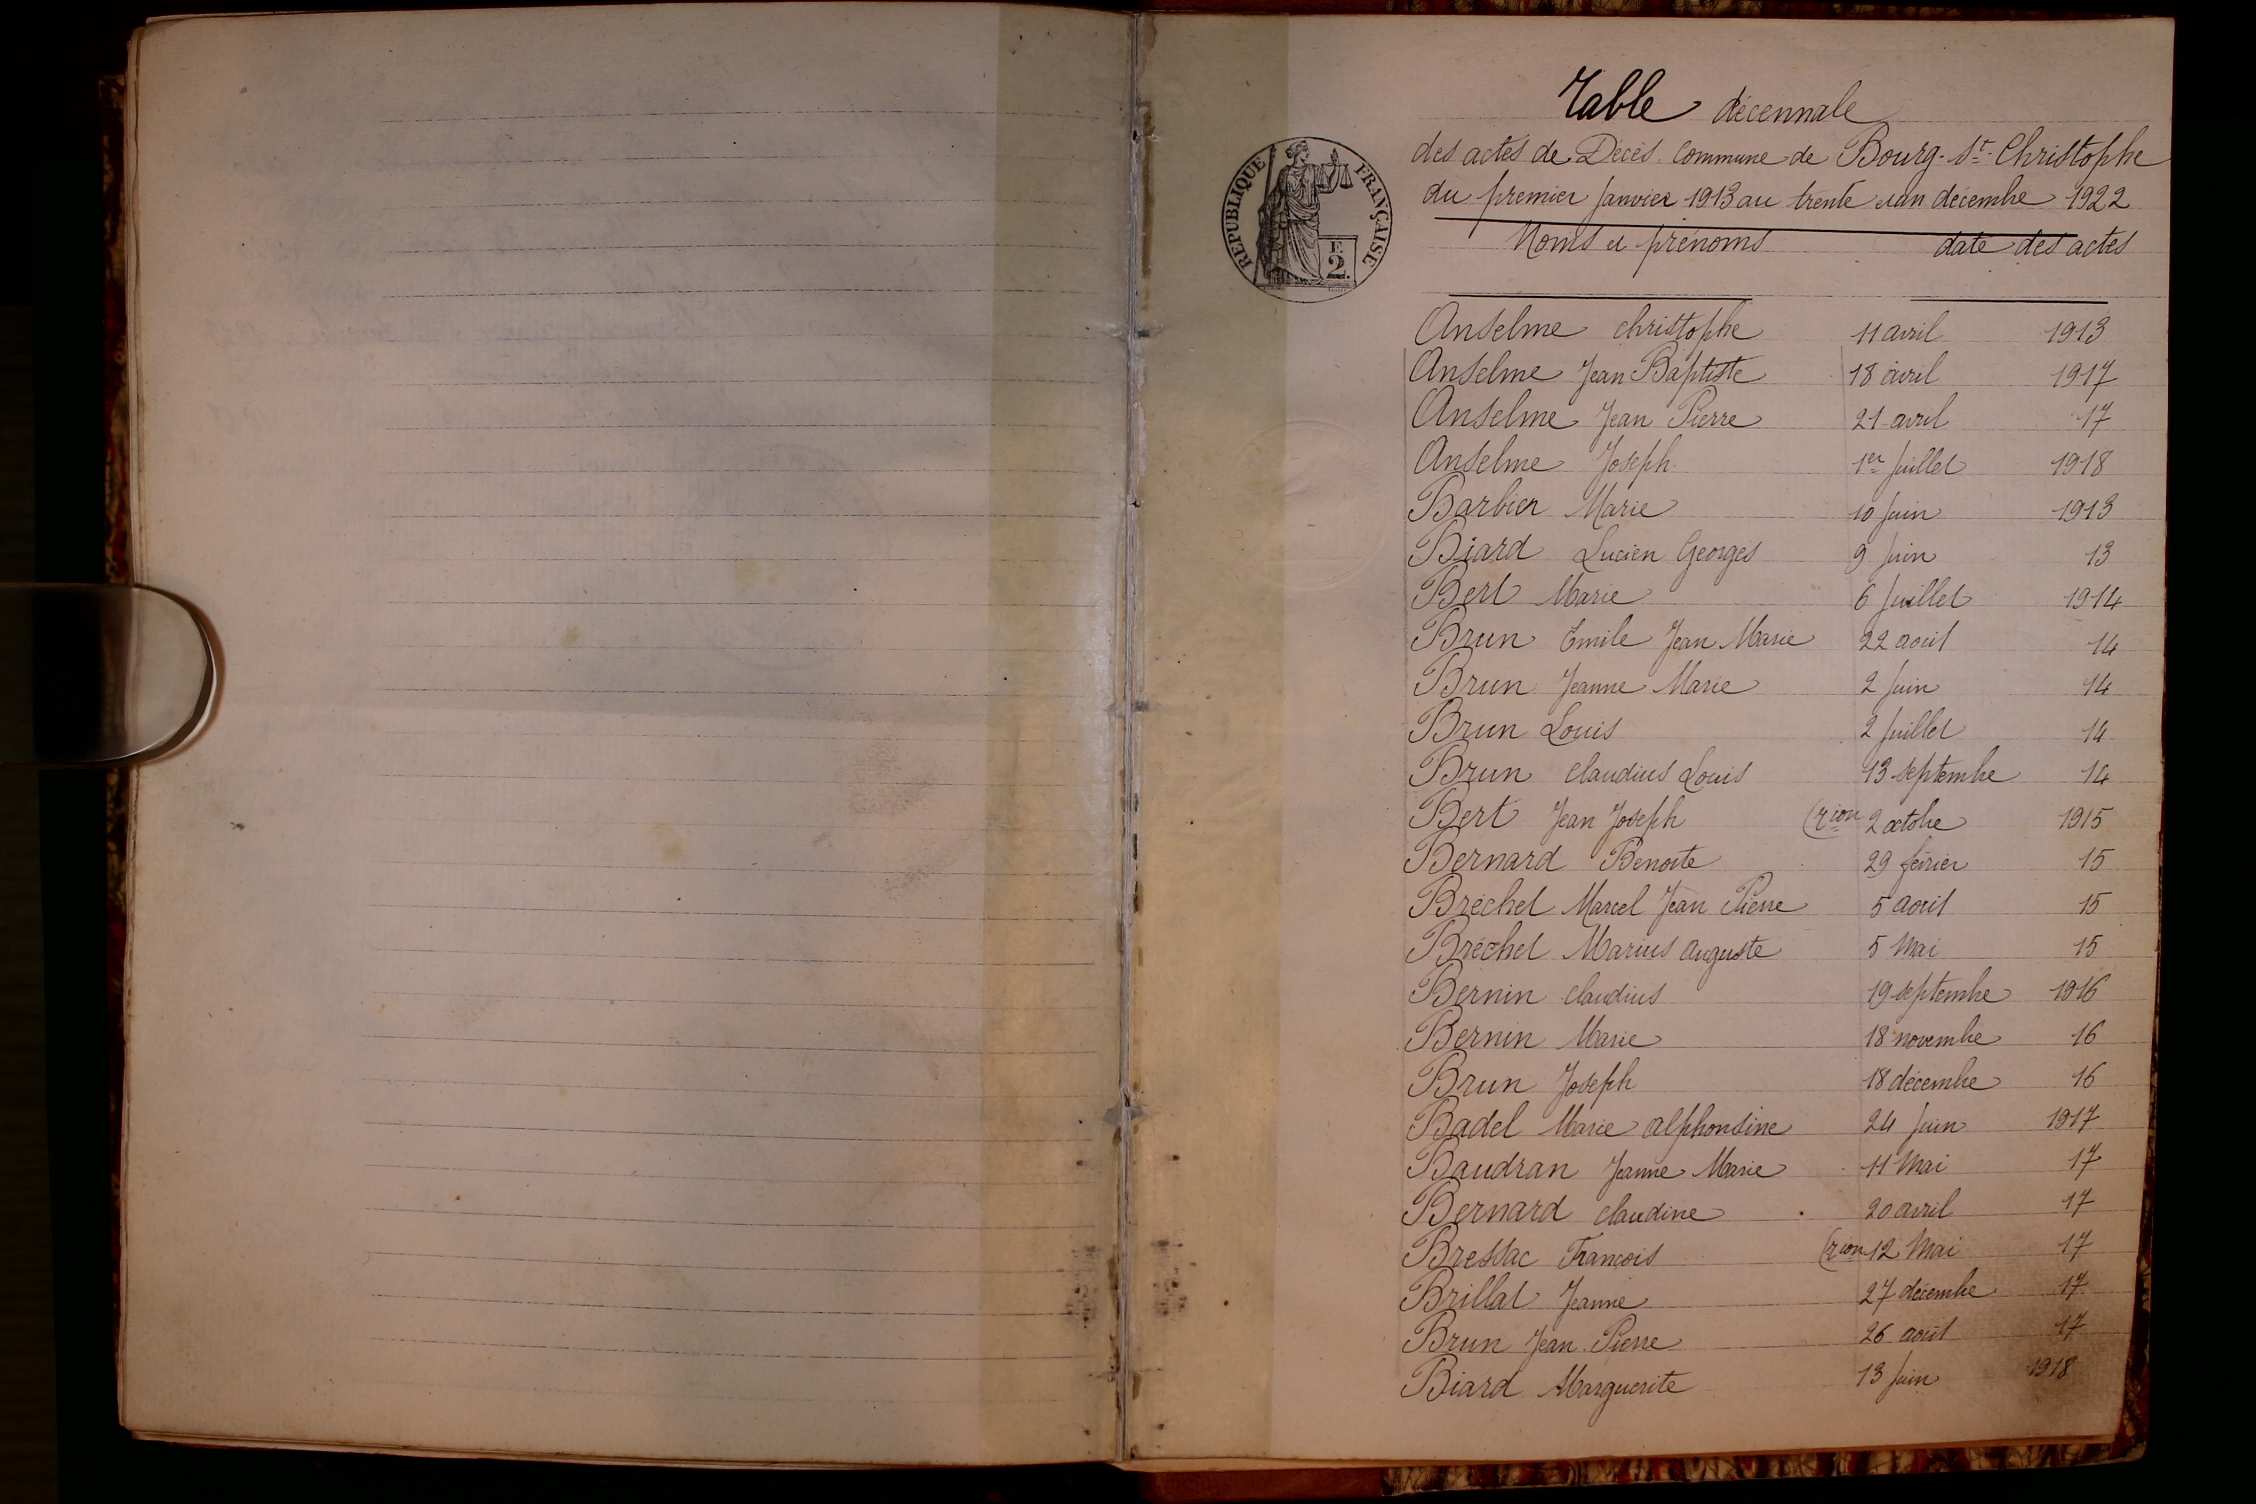 Table décennale
des actes de Décès. Commune de Bourg-St-Christophe
du premier Janvier 1913 au trente un décembre 1922
RÉPUBLIQUE FRANÇAISE
F.
2.
Noms et prénoms date des actes
Anselme christophe 11 avril 1913
Anselme Jean Baptiste 18 avril 1917
Anselme Jean Pierre 21 avril 17
Anselme Joseph 1er Juillet 1918
Barbier Marie 10 Juin 1913
Biard Lucien Georges 9 Juin 13
Bert Marie 6 Juillet 1914
Brun Emile Jean Marie 22 août 14
Brun Jeanne Marie 2 Juin 14
Brun Louis 2 Juillet 14
Brun claudius Louis 13 septembre 14
Bert Jean Joseph (Tion 2 octobre 1915
Bernard Benoite 29 février 15
Bréchet Marcel Jean Pierre 5 août 15
Bréchet Marius auguste 5 Mai 15
Bernin claudius 19 septembre 1916
Bernin Marie 18 novembre 16
Brun Joseph 18 décembre 16
Badel Marie alphonsine 24 Juin 1917
Baudran Jeanne Marie 11 Mai 17
Bernard claudine 20 avril 17
Bressac François (Tion 12 Mai 17
Brillat Jeanne 27 décembre 17
Brun Jean Pierre 26 août 17
Biard Marguerite 13 Juin 1918